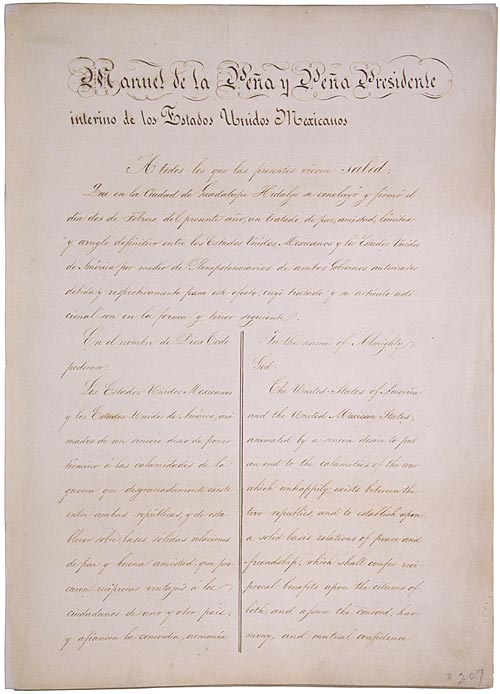 Manuel de la Peña y Peña Presidente
interino de los Estados Unidos Mexicanos
A todos los que las presentes vieren salud:
Que en la Ciudad de Guadalupe Hidalgo se concluyó y firmó el
dia dos de Febrero del presente año, un tratado de paz, amistad, limites
y arreglo definitivo entre los Estados Unidos Mexicanos y los Estados Unidos
de América por medio de Plenipotenciarios de ambos Gobiernos autorizados
debida y respectivamente para este efecto, cuyo tratado y su artículo adi-
cional son en la forma y tenor siguiente.
En el nombre de Dios Todo
poderoso:
Los Estados-Unidos Mexicanos
y los Estados-Unidos de América, ani-
mados de un sincero deseo de poner
término á las calamidades de la
guerra que desgraciadamente existe
entre ambas repúblicas, y de esta-
blecer sobre bases sólidas relaciones
de paz y buena amistad, que pro-
curen recíprocas ventajas á los
ciudadanos de uno y otro pais,
y afiancen la concordia, armonia
In the name of Almighty
God:
The United States of America
and the United Mexican States,
animated by a sincere desire to put
an end to the calamities of the war
which unhappily exists between the
two republics, and to establish upon
a solid basis relations of peace and
friendship, which shall confer reci-
procal benefits upon the citizens of
both, and assure the concord, har-
mony, and mutual confidence
207